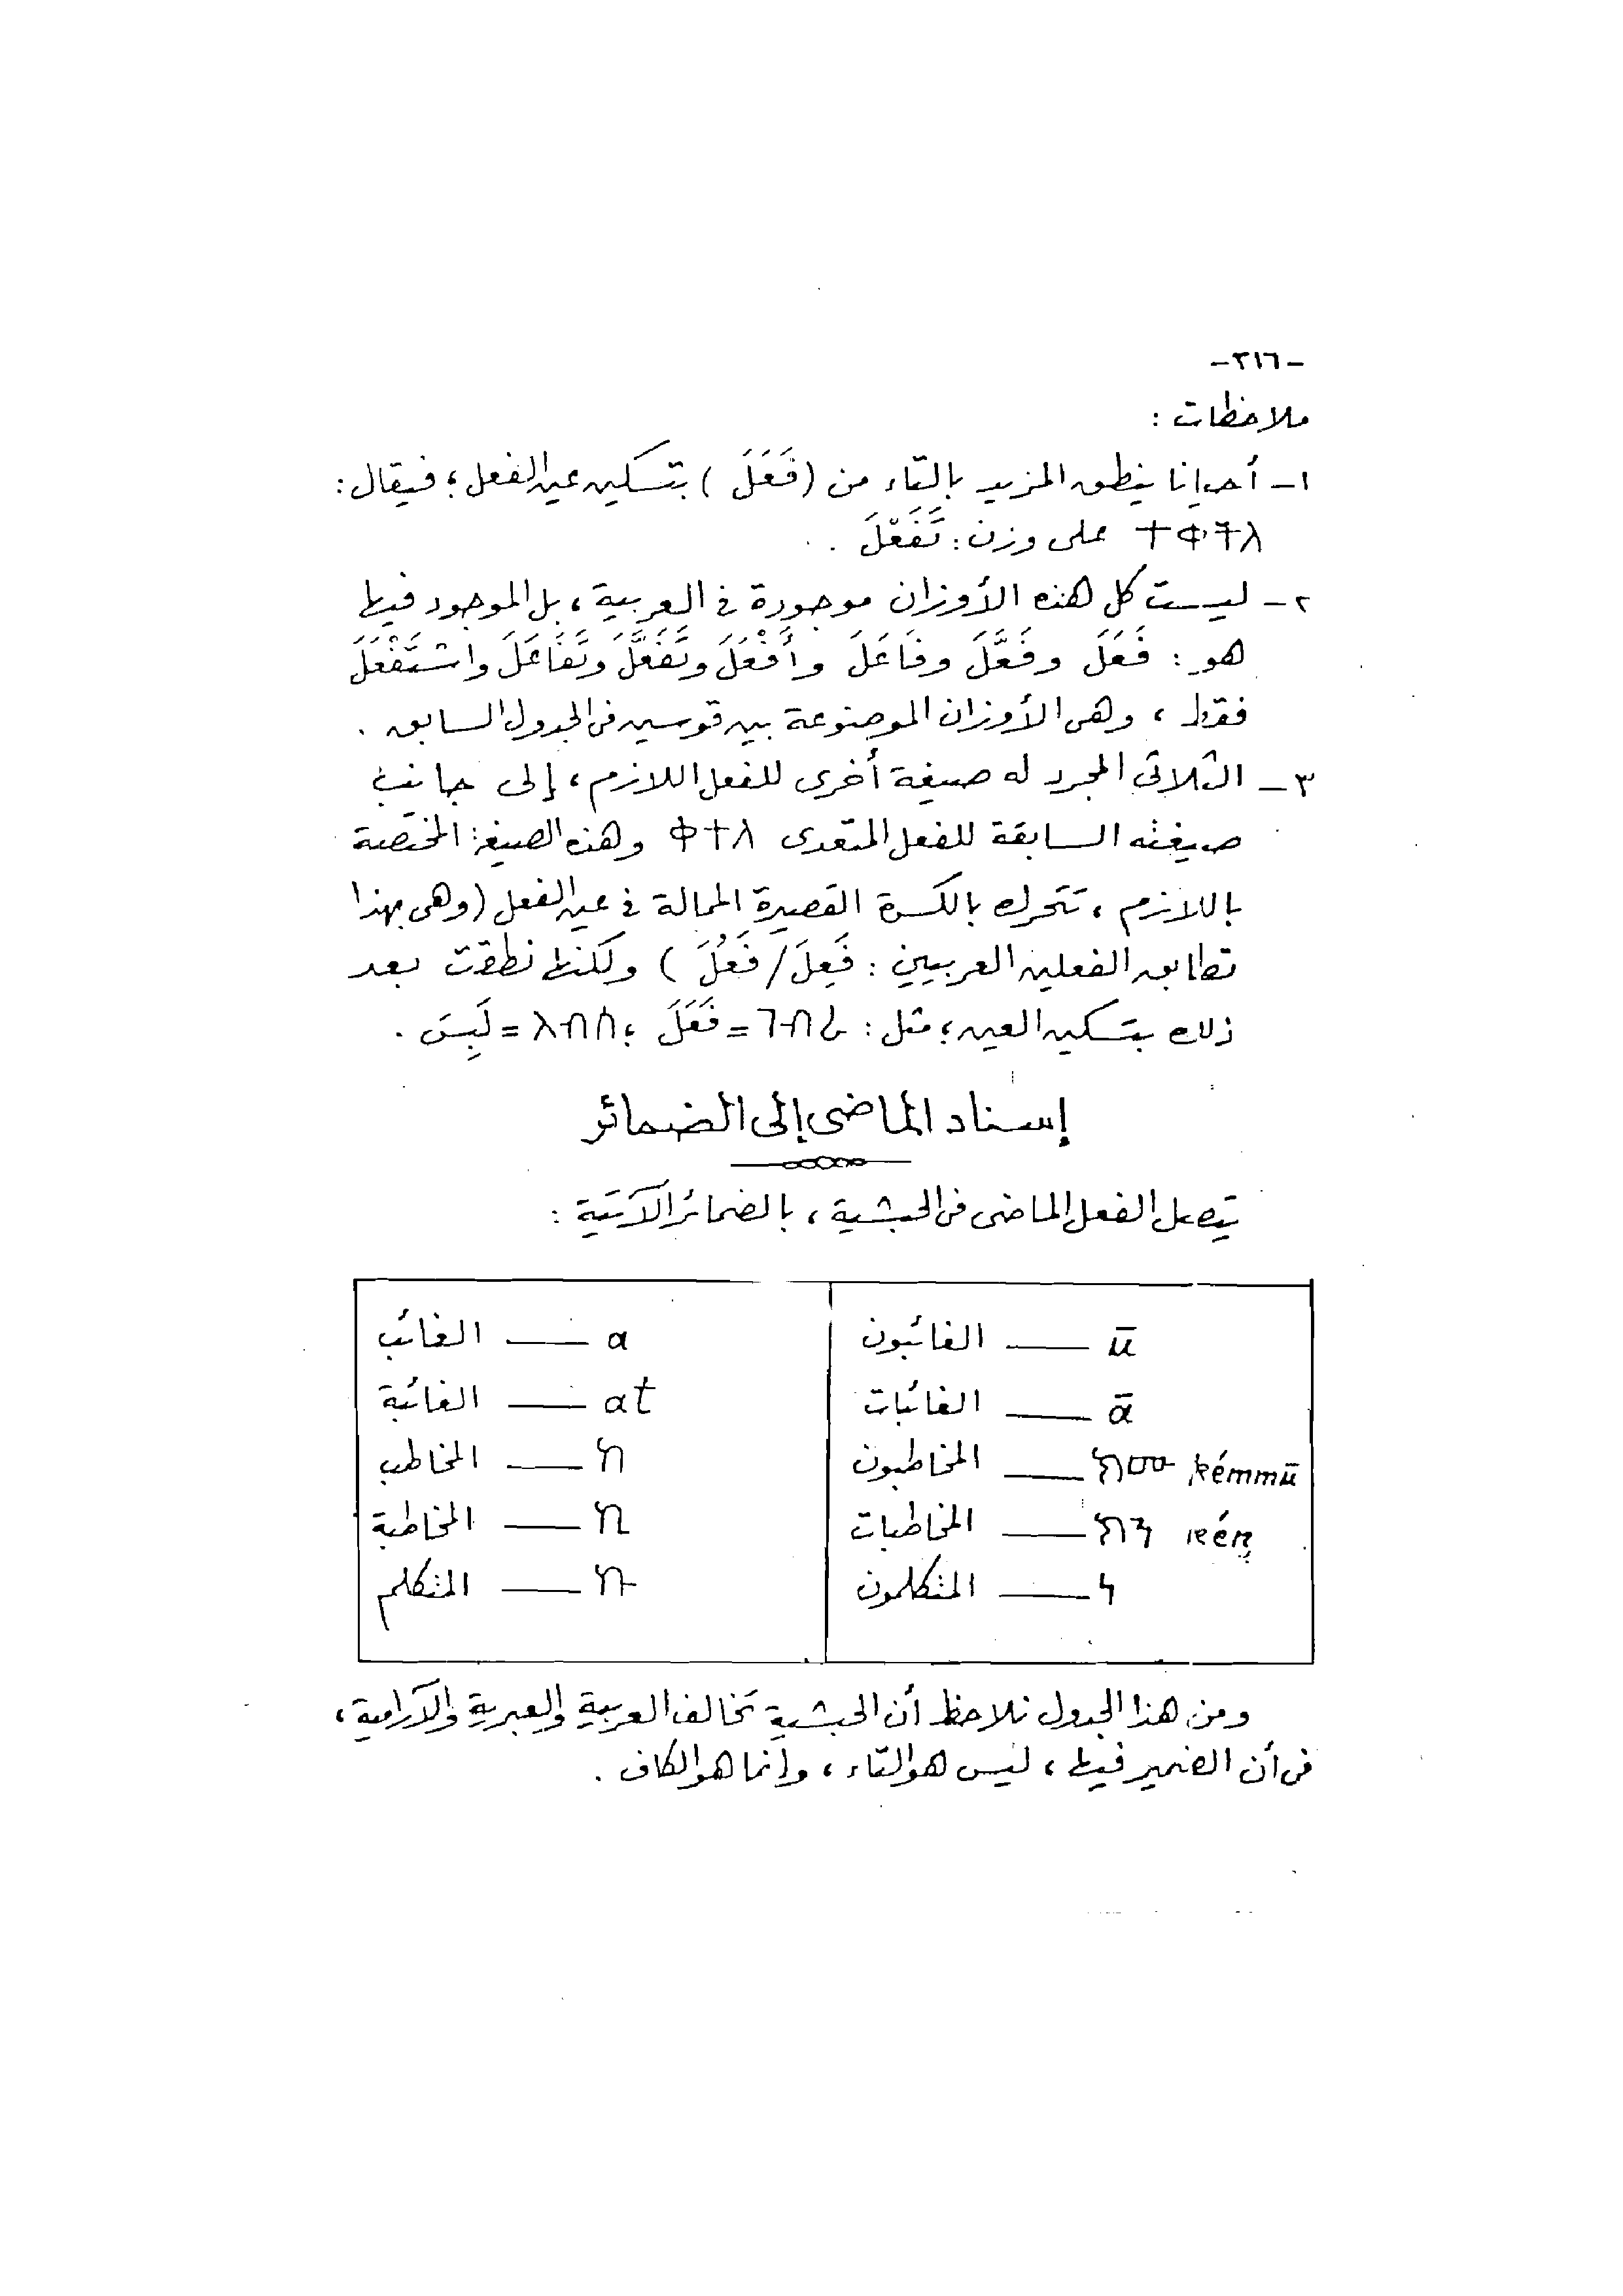 -٣١٦-
ملاحظات :
١- أحيانا ينطق المزيد بالتاء من (فَعَلَ) بتسكين عين الفعل؛ فيقال:
ተቀትለ على وزن: تَفَعْلَ .
٢- ليست كل هذه الأوزان موجودة فى العربية، بل الموجود فيها
هو: فَعَلَ وفَعَّلَ وفَاعَلَ وأَفْعَلَ وتَفَعَّلَ وتَفَاعَلَ واسْتَفْعَلَ
فقط، وهى الأوزان الموضوعة بين قوسين فى الجدول السابق.
٣- الثلاثى المجرد له صيغة أخرى للفعل اللازم، إلى جانب
صيغته السابقة للفعل المتعدى ቀተለ وهذه الصيغة المختصة
باللازم، تتحرك بالكسرة القصيرة الممالة فى عين الفعل (وهى بهذا
تطابق الفعلين العربيين: فَعِلَ/فَعُلَ) ولكنها نطقت بعد
ذلك بتسكين العين؛ مثل: ገብረ = فَعَلَ؛ ለብሰ = لَبِسَ.
إسناد الماضى إلى الضمائر
يتصل الفعل الماضى فى الحبشية، بالضمائر الآتية:
ū — الغائبون a — الغائب
ā — الغائبات at — الغائبة
ክሙ kémmū — المخاطبون ከ — المخاطب
ክን kén — المخاطبات ኪ — المخاطبة
ነ — المتكلمون ኩ — المتكلم
ومن هذا الجدول نلاحظ أن الحبشية تخالف العربية والعبرية والآرامية،
فى أن الضمير فيها، ليس هو التاء، وإنما هو الكاف.